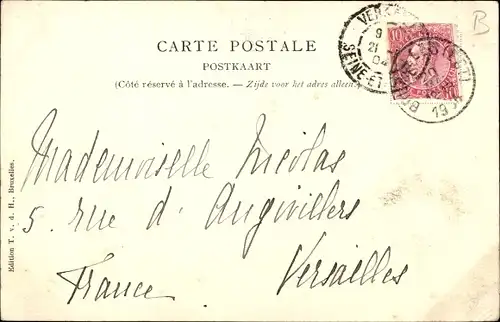 B
CARTE POSTALE
POSTKAART
(Côté réservé à l'adresse. — Zijde voor het adres alleen.)
10
9
21
04
SEINE-ET-
Mademoiselle Nicolas
5, rue d'Angivillers
Versailles
France
Edition T. v. d. H., Bruxelles.